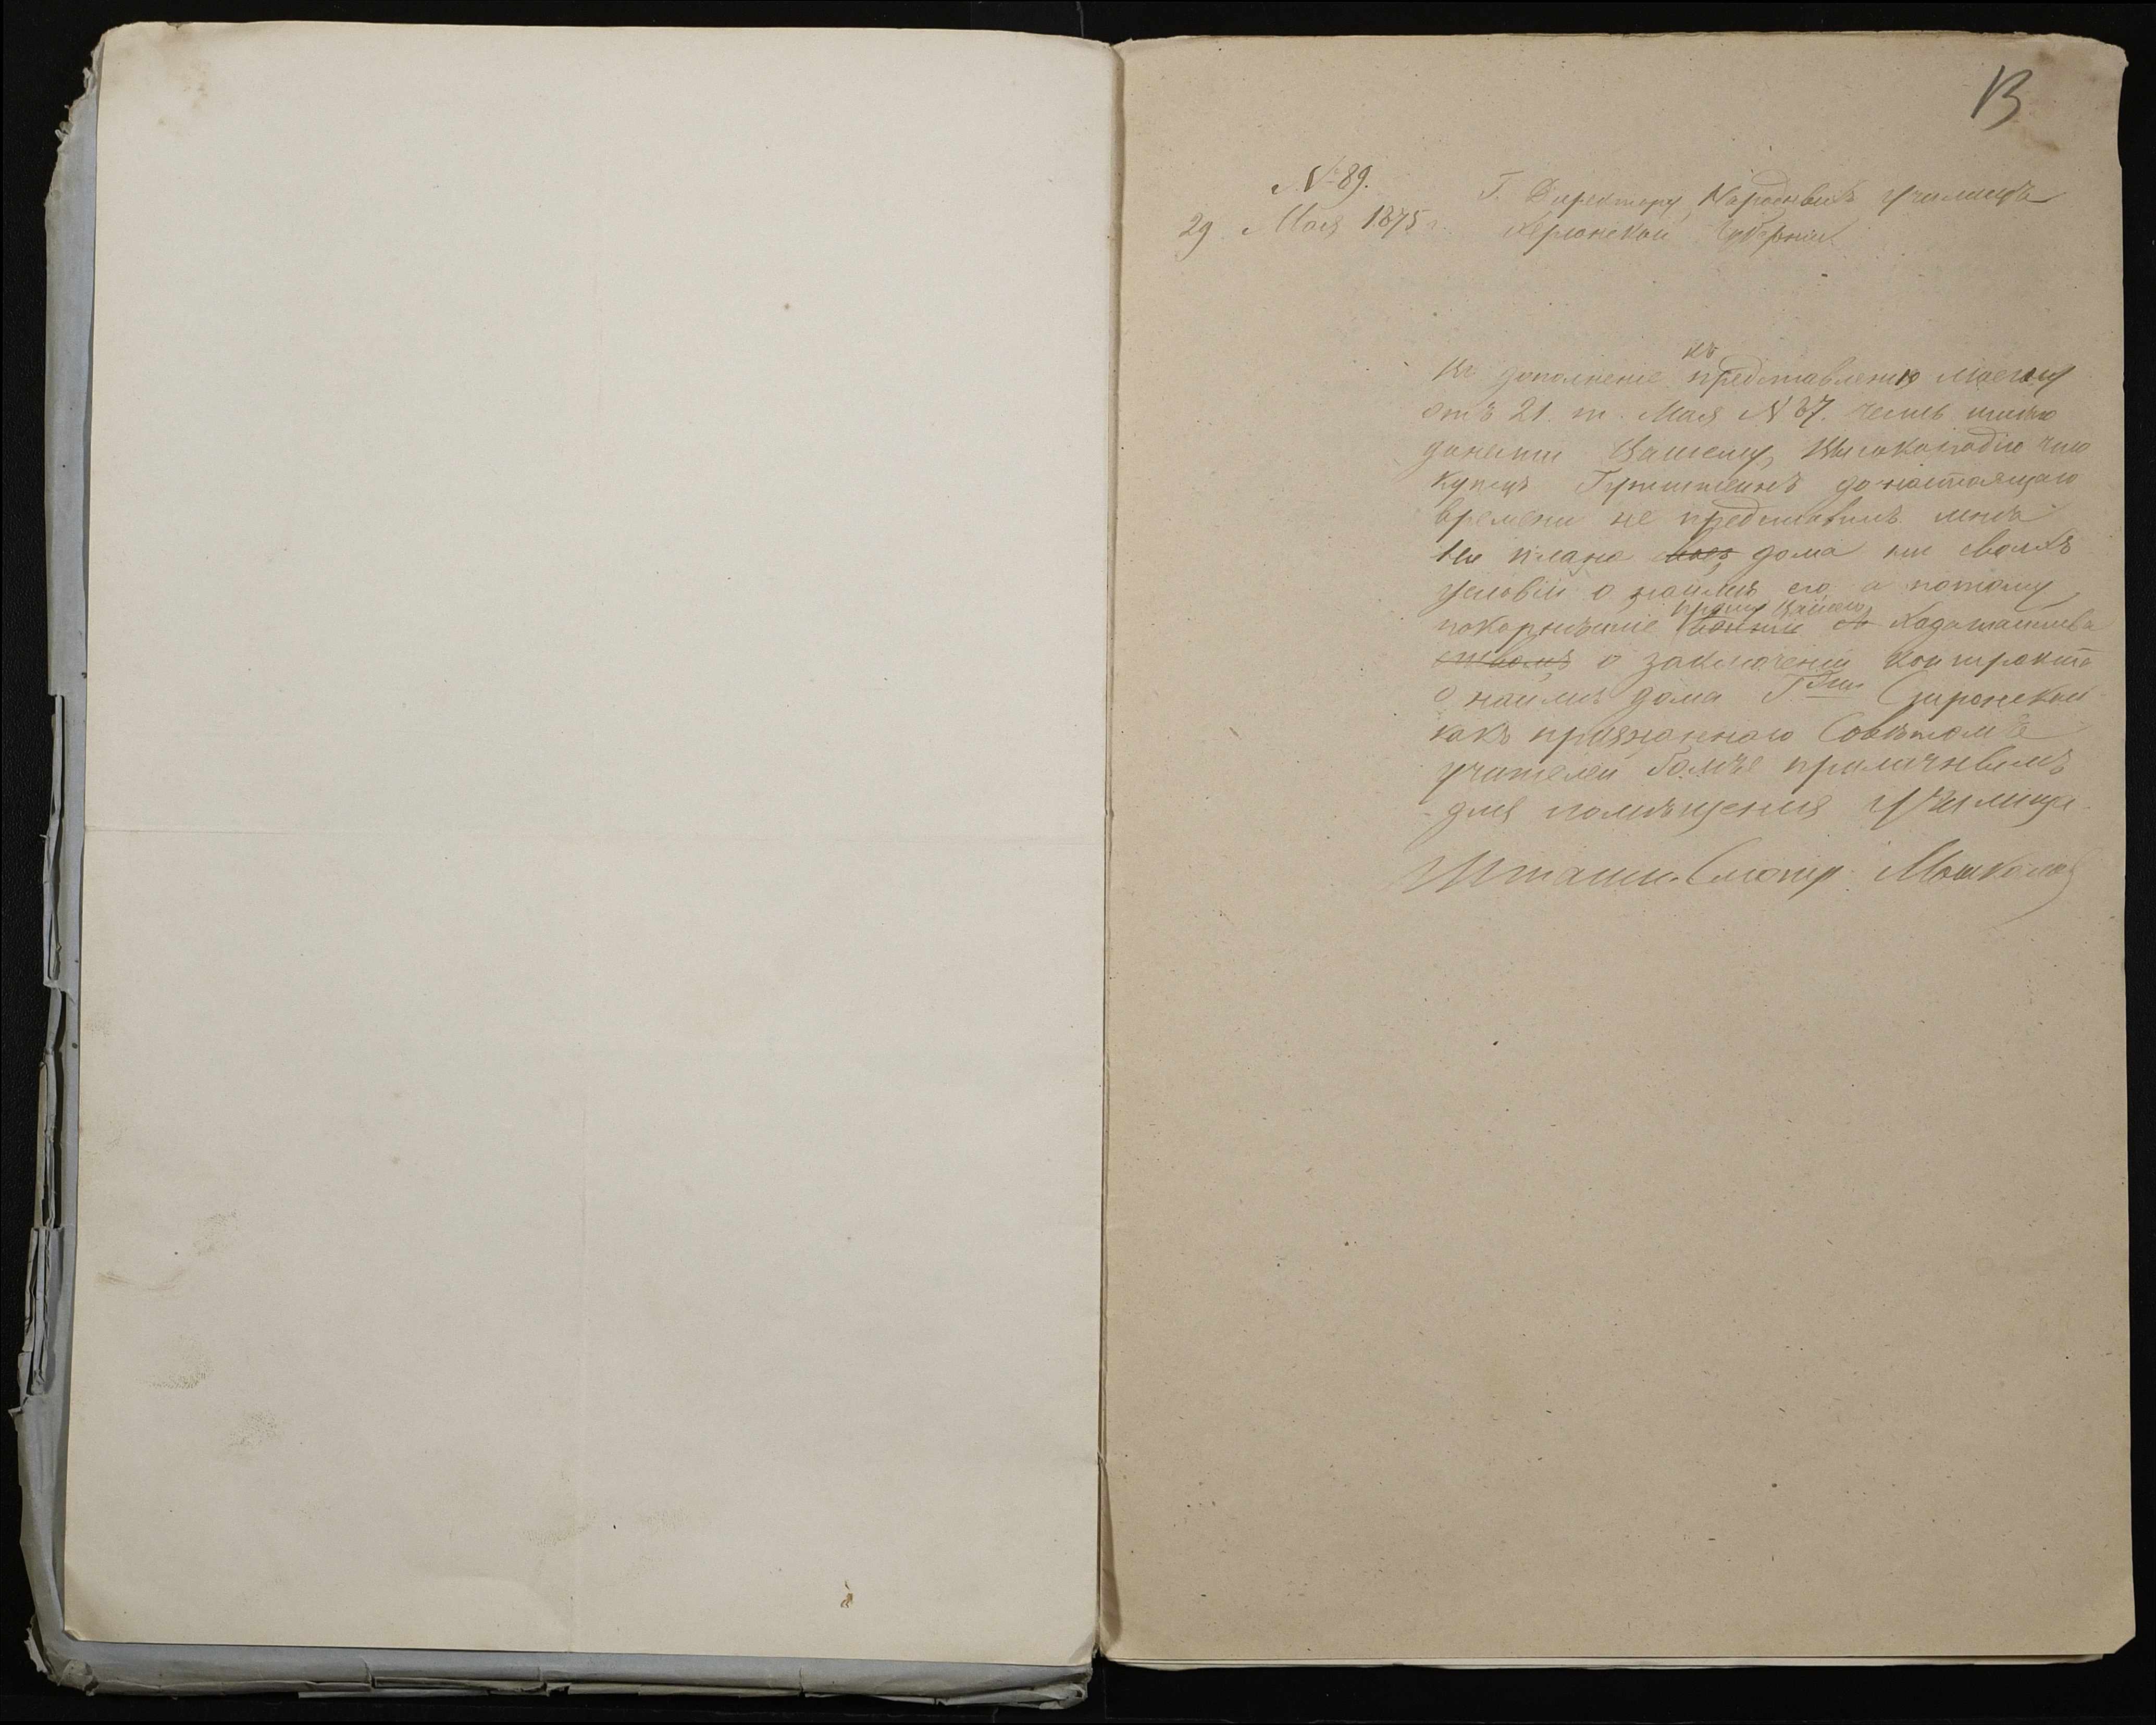 13
№ 89.
29 Мая 1875 г.
Г. Директору Народныхъ училищъ
Херсонской Губерніи
Въ дополненіе къ представленію моему
отъ 21. т. Мая № 87. честь имѣю
донести Вашему Высокородію что
купецъ до настоящаго
времени не представилъ мнѣ
ни плана дома ни своихъ
условій о наймѣ его а потому
покорнѣйше прошу Вашего
о заключеніи контракта
о наймѣ дома Г-жи
какъ признаннаго Совѣтомъ
учителей болѣе приличнымъ
для помѣщенія училища.
Штатн. Смотр.